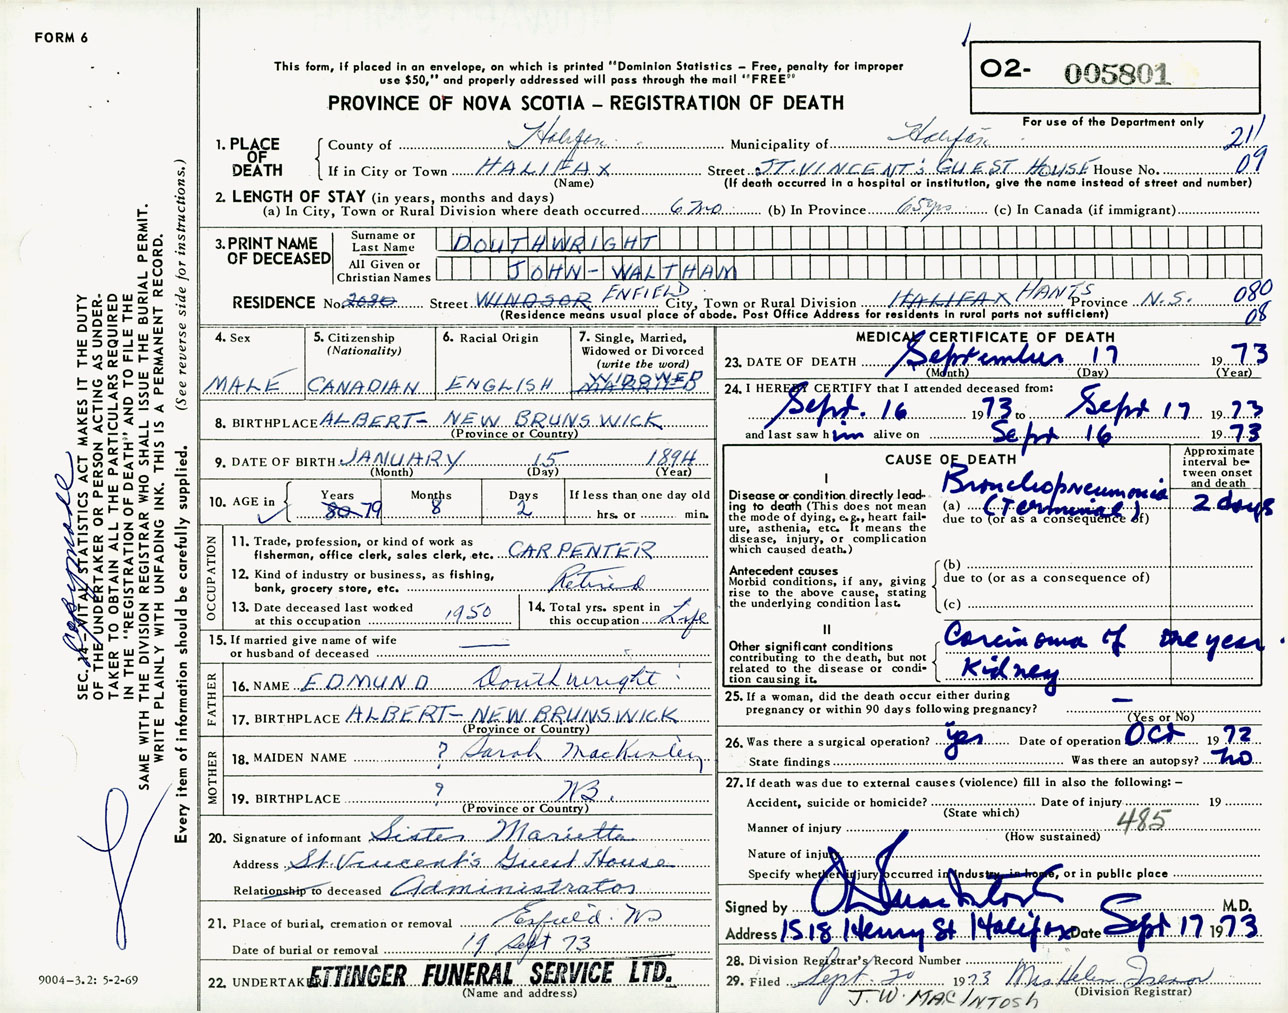 FORM 6
This form, if placed in an envelope, on which is printed "Dominion Statistics – Free, penalty for improper
use $50," and properly addressed will pass through the mail "FREE"
PROVINCE OF NOVA SCOTIA – REGISTRATION OF DEATH
O2- 005801
For use of the Department only
211
09
1. PLACE OF DEATH
County of Halifax Municipality of Halifax
If in City or Town HALIFAX Street ST. VINCENT'S GUEST HOUSE House No.
(Name) (If death occurred in a hospital or institution, give the name instead of street and number)
2. LENGTH OF STAY (in years, months and days)
(a) In City, Town or Rural Division where death occurred 6 mo (b) In Province 65 yrs (c) In Canada (if immigrant)
3. PRINT NAME OF DECEASED
Surname or Last Name DOUTHWRIGHT
All Given or Christian Names JOHN - WALTHAM
RESIDENCE No. 2080 Street WINDSOR ENFIELD City, Town or Rural Division HALIFAX HANTS Province N.S. 080
08
(Residence means usual place of abode. Post Office Address for residents in rural parts not sufficient)
4. Sex
MALE
5. Citizenship
(Nationality)
CANADIAN
6. Racial Origin
ENGLISH
7. Single, Married,
Widowed or Divorced
(write the word)
WIDOWED
MARRIED
8. BIRTHPLACE ALBERT - NEW BRUNSWICK
(Province or Country)
9. DATE OF BIRTH JANUARY 15 1894
(Month) (Day) (Year)
10. AGE in
Years Months Days If less than one day old
80 79 8 2 hrs. or min.
OCCUPATION
11. Trade, profession, or kind of work as
fisherman, office clerk, sales clerk, etc. CARPENTER
12. Kind of industry or business, as fishing,
bank, grocery store, etc. Retired
13. Date deceased last worked
at this occupation 1950
14. Total yrs. spent in
this occupation Life
15. If married give name of wife
or husband of deceased —
FATHER
16. NAME EDMUND Douthwright
17. BIRTHPLACE ALBERT - NEW BRUNSWICK
(Province or Country)
MOTHER
18. MAIDEN NAME ? Sarah MacKinley
19. BIRTHPLACE ? NB.
(Province or Country)
20. Signature of informant Sister Marietta
Address St Vincent's Guest House
Relationship to deceased Administrator
21. Place of burial, cremation or removal Enfield NS
Date of burial or removal 19 Sept 73
22. UNDERTAKER ETTINGER FUNERAL SERVICE LTD.
(Name and address)
MEDICAL CERTIFICATE OF DEATH
23. DATE OF DEATH September 17 1973
(Month) (Day) (Year)
24. I HEREBY CERTIFY that I attended deceased from:
Sept. 16 1973 to Sept 17 1973
and last saw him alive on Sept 16 1973
CAUSE OF DEATH
Approximate
interval be-
tween onset
and death
I
Disease or condition directly lead-
ing to death (This does not mean
the mode of dying, e.g., heart fail-
ure, asthenia, etc. It means the
disease, injury, or complication
which caused death.)
Bronchopneumonia
(a) (Terminal) 2 days
due to (or as a consequence of)
Antecedent causes
Morbid conditions, if any, giving
rise to the above cause, stating
the underlying condition last.
(b)
due to (or as a consequence of)
(c)
II
Other significant conditions
contributing to the death, but not
related to the disease or condi-
tion causing it.
Carcinoma of one year.
Kidney
25. If a woman, did the death occur either during
pregnancy or within 90 days following pregnancy? —
(Yes or No)
26. Was there a surgical operation? yes Date of operation Oct 1972
State findings Was there an autopsy? no
27. If death was due to external causes (violence) fill in also the following: –
Accident, suicide or homicide? Date of injury 19
(State which)
Manner of injury 485
(How sustained)
Nature of injury
Specify whether injury occurred in industry, in home, or in public place
Signed by M.D.
Address 1518 Henry St Halifax Date Sept 17 1973
28. Division Registrar's Record Number
29. Filed Sept. 20 1973 Mrs Helen
J. W. MACINTOSH (Division Registrar)
SEC. 14 – VITAL STATISTICS ACT MAKES IT THE DUTY
OF THE UNDERTAKER OR PERSON ACTING AS UNDER-
TAKER TO OBTAIN ALL THE PARTICULARS REQUIRED
IN THE "REGISTRATION OF DEATH" AND TO FILE THE
SAME WITH THE DIVISION REGISTRAR WHO SHALL ISSUE THE BURIAL PERMIT.
WRITE PLAINLY WITH UNFADING INK. THIS IS A PERMANENT RECORD.
Every item of information should be carefully supplied. (See reverse side for instructions.)
9004–3.2: 5-2-69